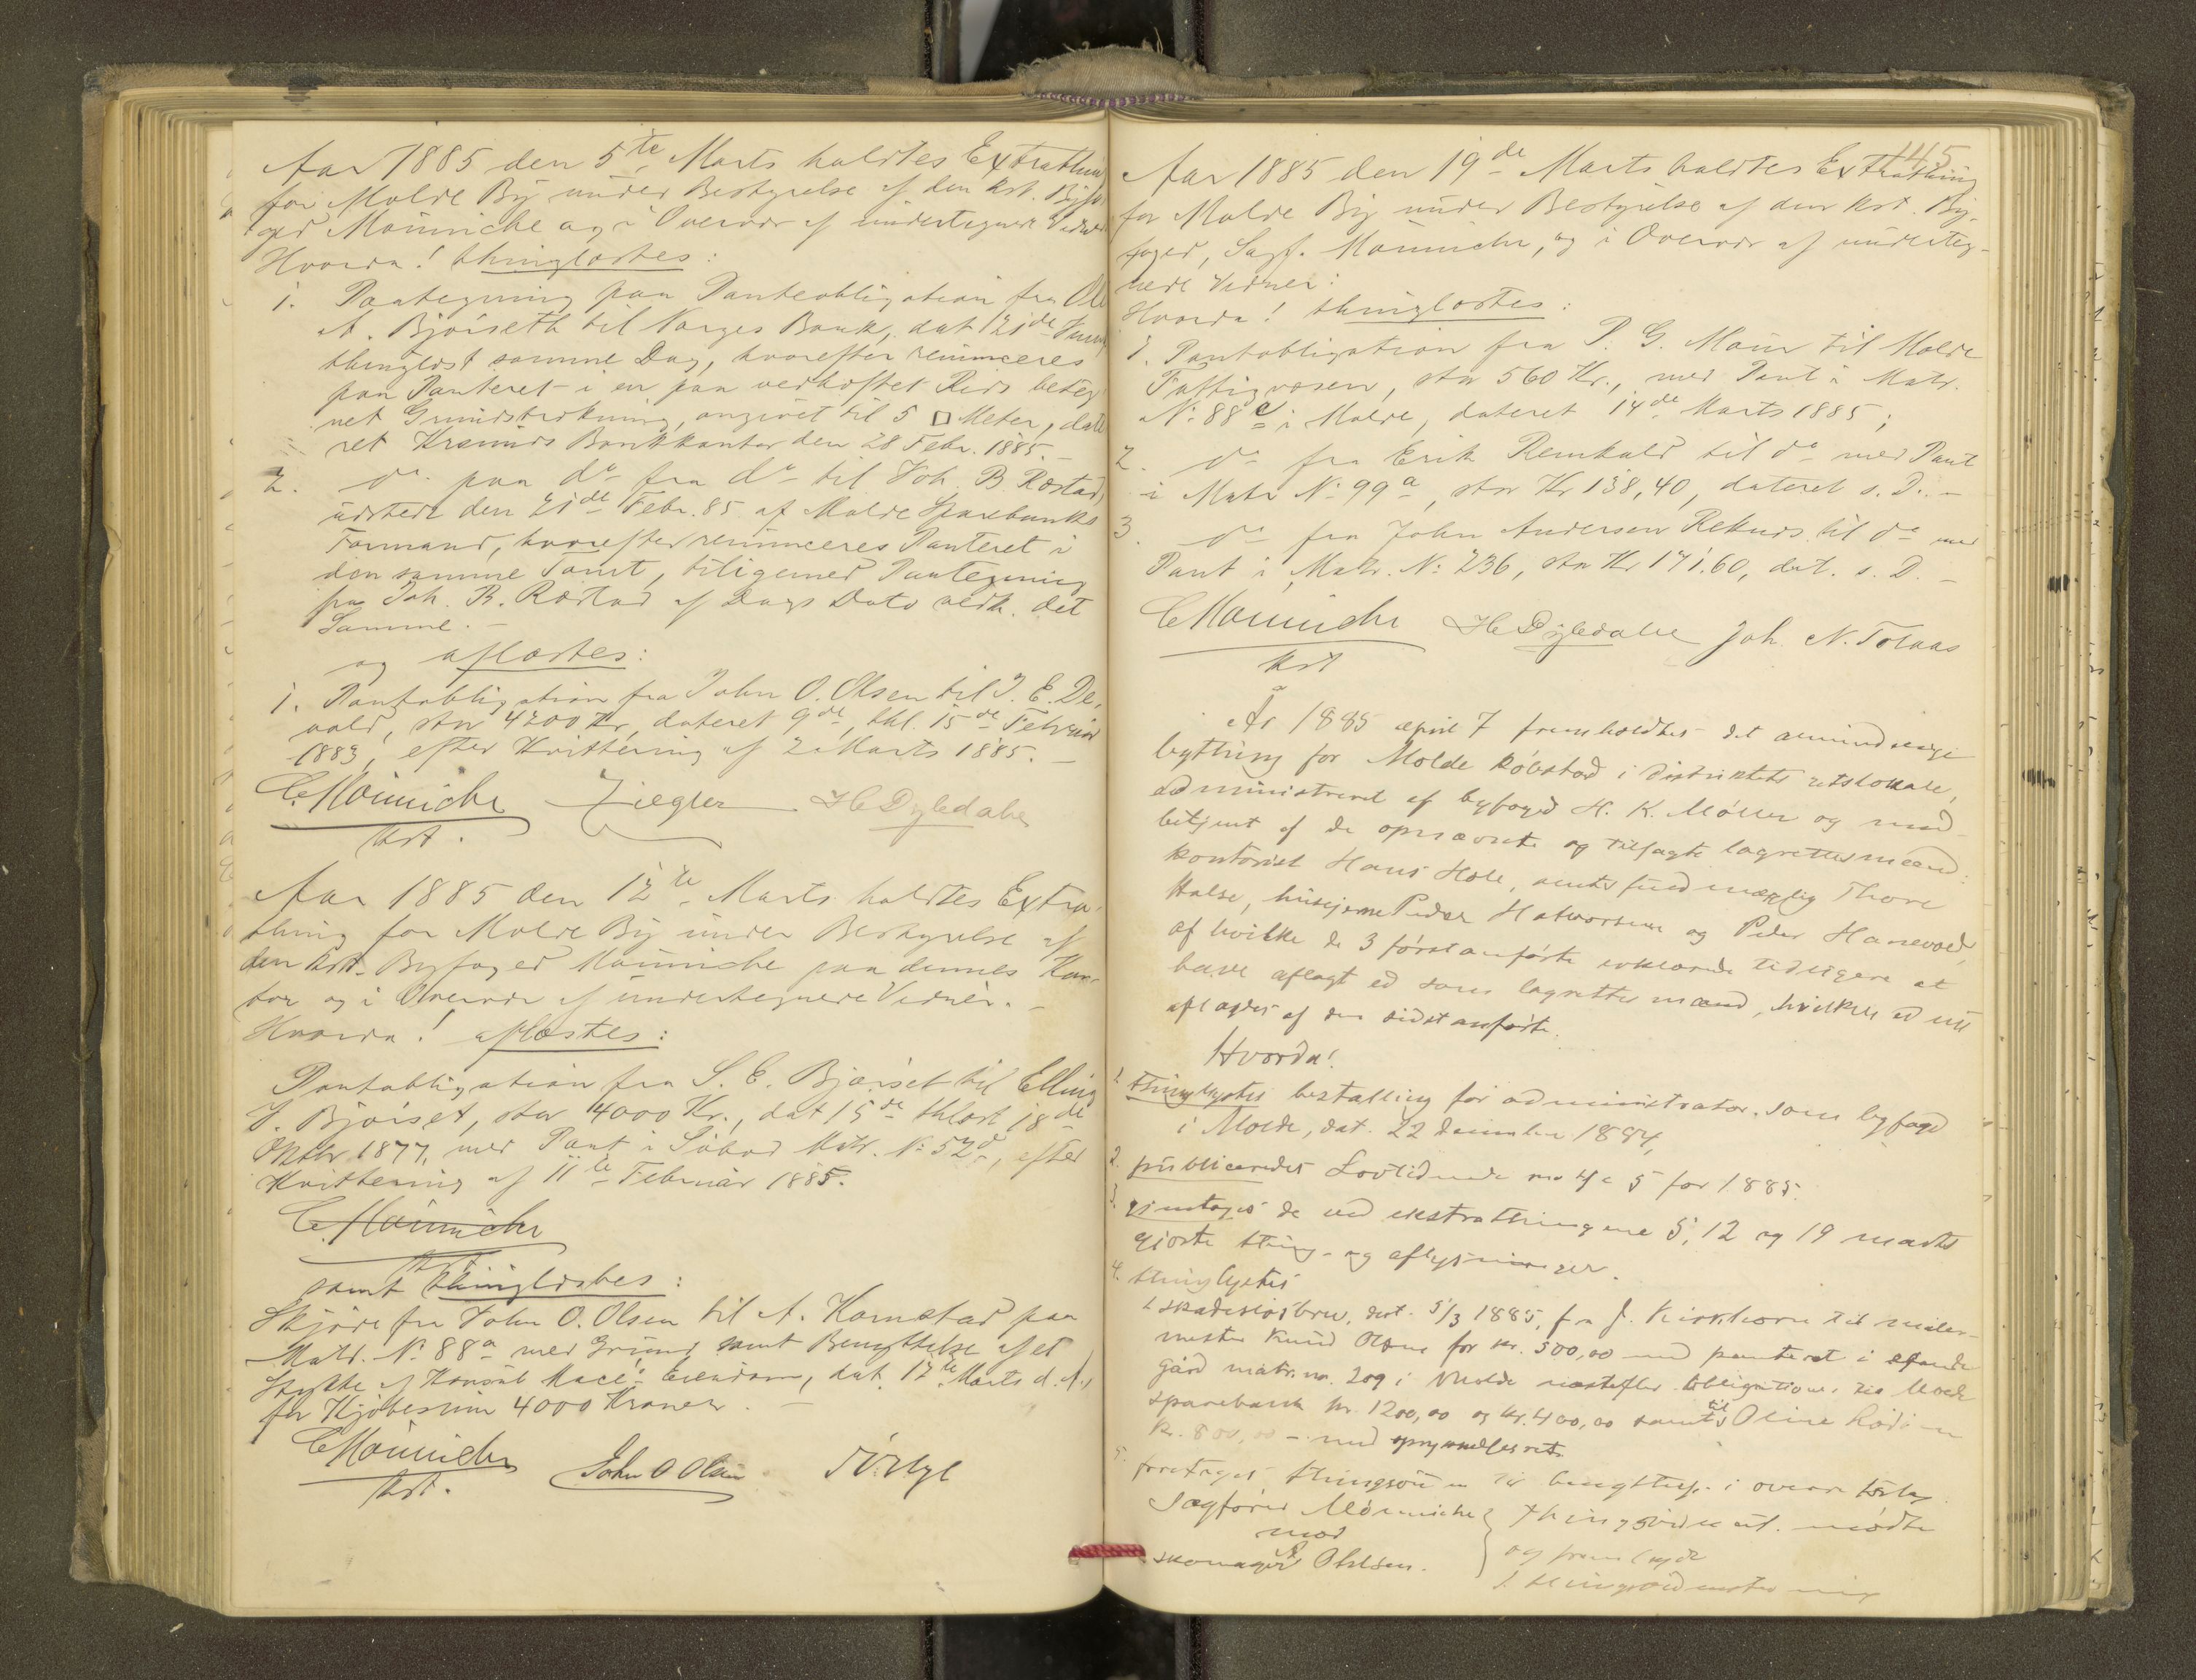 Aar 1885 den 5te Marts holdtes Extrathin
for Molde By under Bestyrelse af den kst. Byfo
ged Mönniche og i Overvær af undertegnede Vidner
Hvorda! thinglæstes:
1. Paategning paa Panteobligation fra Ole
A. Bjørseth til Norges Bank, dat 21de
thinglæst samme Dag, hvorefter renunceres
paa Panteret i en paa vedhæftet Rids beteg
net Grundstrækning, angivet til 5 □ Meter, date
ret Krsunds Bankkontor den 28 Febr. 1885.
2. do paa do fra do til Joh. B. Røstad,
udstedt den 21de Febr. 85 af Molde Sparebanks
Formand, hvorefter renunceres Panteret i
den samme Tomt, tilligemed Paategning
fra Joh. B. Røstad af Dags Dato vedk. det
Samme.
og aflæstes:
1. Pantobligation fra John O. Olsen til J. E. De
vold, stor 4200 Kr, dateret 9de, thl. 15de Februar
1883, efter Kvittering af 2 Marts 1885.
C. Mönniche Ziegler H Dyledahl
kst.
Aar 1885 den 12te Marts holdtes Extra-
thing for Molde By under Bestyrelse af
den kst. Byfoged Mönniche paa dennes Kon-
tor og i Overvær af undertegnede Vidner.
Hvorda! aflæstes:
Pantobligation fra S. E. Bjørset til Elling
J. Bjørset, stor 4000 Kr., dat 15de thlæst 18de
Oktbr 1877, med Pant i Søbod Matr. No 52d, efter
Kvittering af 11te Februar 1885.
C. Mönniche
kst
samt thinglæstes:
Skjøde fra John O. Olsen til A. Kornstad paa
Matr. No 88a med Grund samt Benyttelse af et
Stykke af Konsul Macé's Eiendom, dat. 12te Marts d. A.,
for Kjøbesum 4000 Kroner.
C Mönniche John O Olsen
kst.
145
Aar 1885 den 19de Marts holdtes Extrathing
for Molde By under Bestyrelse af den kst. By-
foged, Sagf. Mönniche, og i Overvær af underteg-
nede Vidner:
Hvorda! thinglæstes:
1. Pantobligation fra P. G. Moum til Molde
Fattigvæsen, stor 560 Kr., med Pant i Matr.
No 88c i Molde, dateret 14de Marts 1885;
2. do fra Erik Remkald til do med Pant
i Matr No 99a, stor Kr 138,40, dateret s. D. -
3. do fra John Andersen Reknes til do med
Pant i Matr. No 236, stor Kr 171.60, dat. s. D. -
C Mönniche H Dyledahl Joh. N. Tolaas
kst
År 1885 april 7 fremholdtes det almindelige
bything for Molde købstad i distriktets retslokale,
administreret af byfoged H. K. Møller og med-
betjent af de opnævnte og tilsagte lagrettesmænd:
kontorist Hans Hole, amtsfuldmægtig Thore
Halse, husejerne Peder Halvorsen og Peder Hanevold,
af hvilke de 3 først anførte erklærede tidligere at
have aflagt ed som lagrettesmænd, hvilken ed nu
aflagdes af den sidst anførte.
Hvorda!
1. thinglystes bestalling for administrator som byfoged
i Molde, dat. 22 december 1884,
2. publiceredes Lovtidende no 4 a 5 for 1885.
3. gjentoges de ved ekstrathingene 5, 12 og 19 marts
gjorte thing- og aflysninger.
4. thinglystes
1 skadesløsbrev, dat. 5/3 1885, fra J. Kirkhorn til
mester Knud Olsen for kr. 500,00 med panteret i
gård matr. no. 209 i Molde næstefter obligationer til Molde
sparebank kr. 1200,00 og kr. 400,00 samt til Oline
kr. 800,00 – med oprykkelsesret.
5. foretoges
Sagfører Mönniche } thingsvidneut. mødte
mod
skomager A Ohlsen. og fremlagde